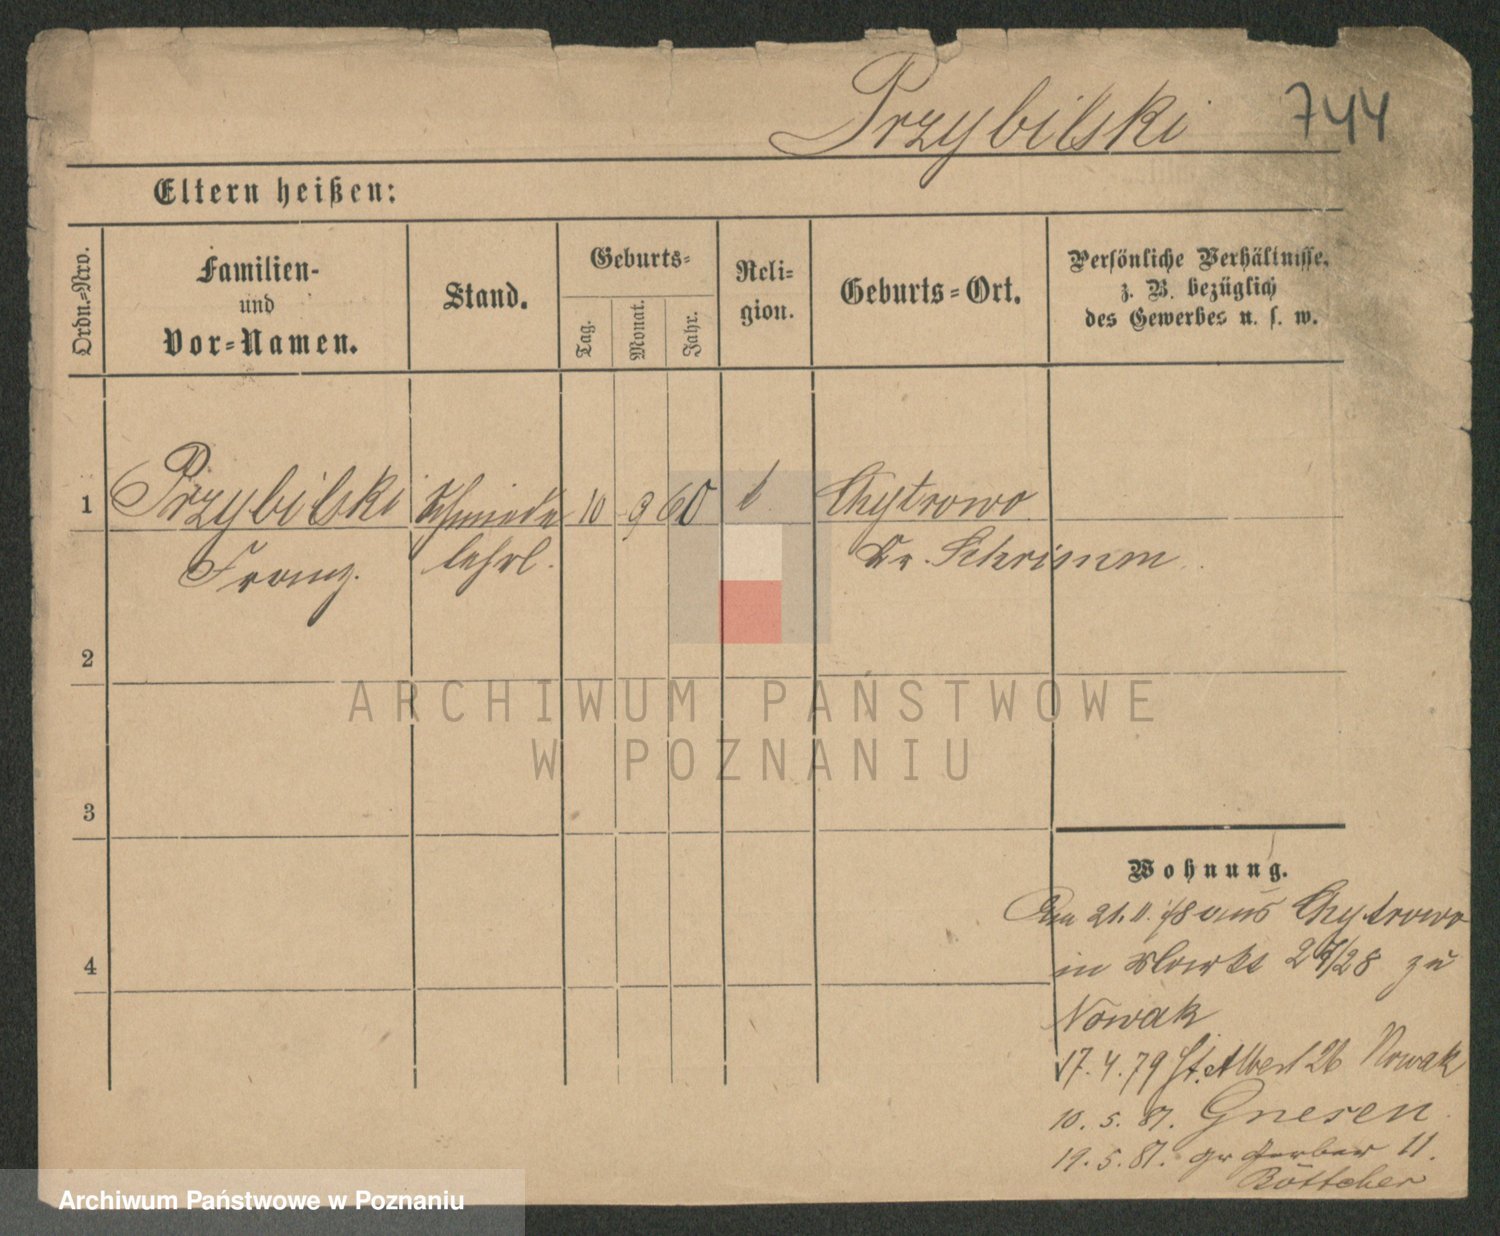 Przybilski 744
Eltern heißen:
Ordn.-Nro.
Familien-
und
Vor-Namen.
Stand.
Geburts-
Tag.
Monat.
Jahr.
Reli-
gion.
Geburts-Ort.
Persönliche Verhältnisse,
z. B. bezüglich
des Gewerbes u. s. w.
1 Przybilski Schmiede 10 9 60 Chytrowo
Franz. lehrl. Kr. Schrimm
2
3
4
Wohnung.
Am 21.11.78 aus Chytrowo
in Markt 27/28 zu
Nowak
17.4.79 St. Albert 26 Nowak
10.5.81. Gnesen
19.5.81. gr Gerber 11.
Böttcher
ARCHIWUM PAŃSTWOWE
W POZNANIU
Archiwum Państwowe w Poznaniu